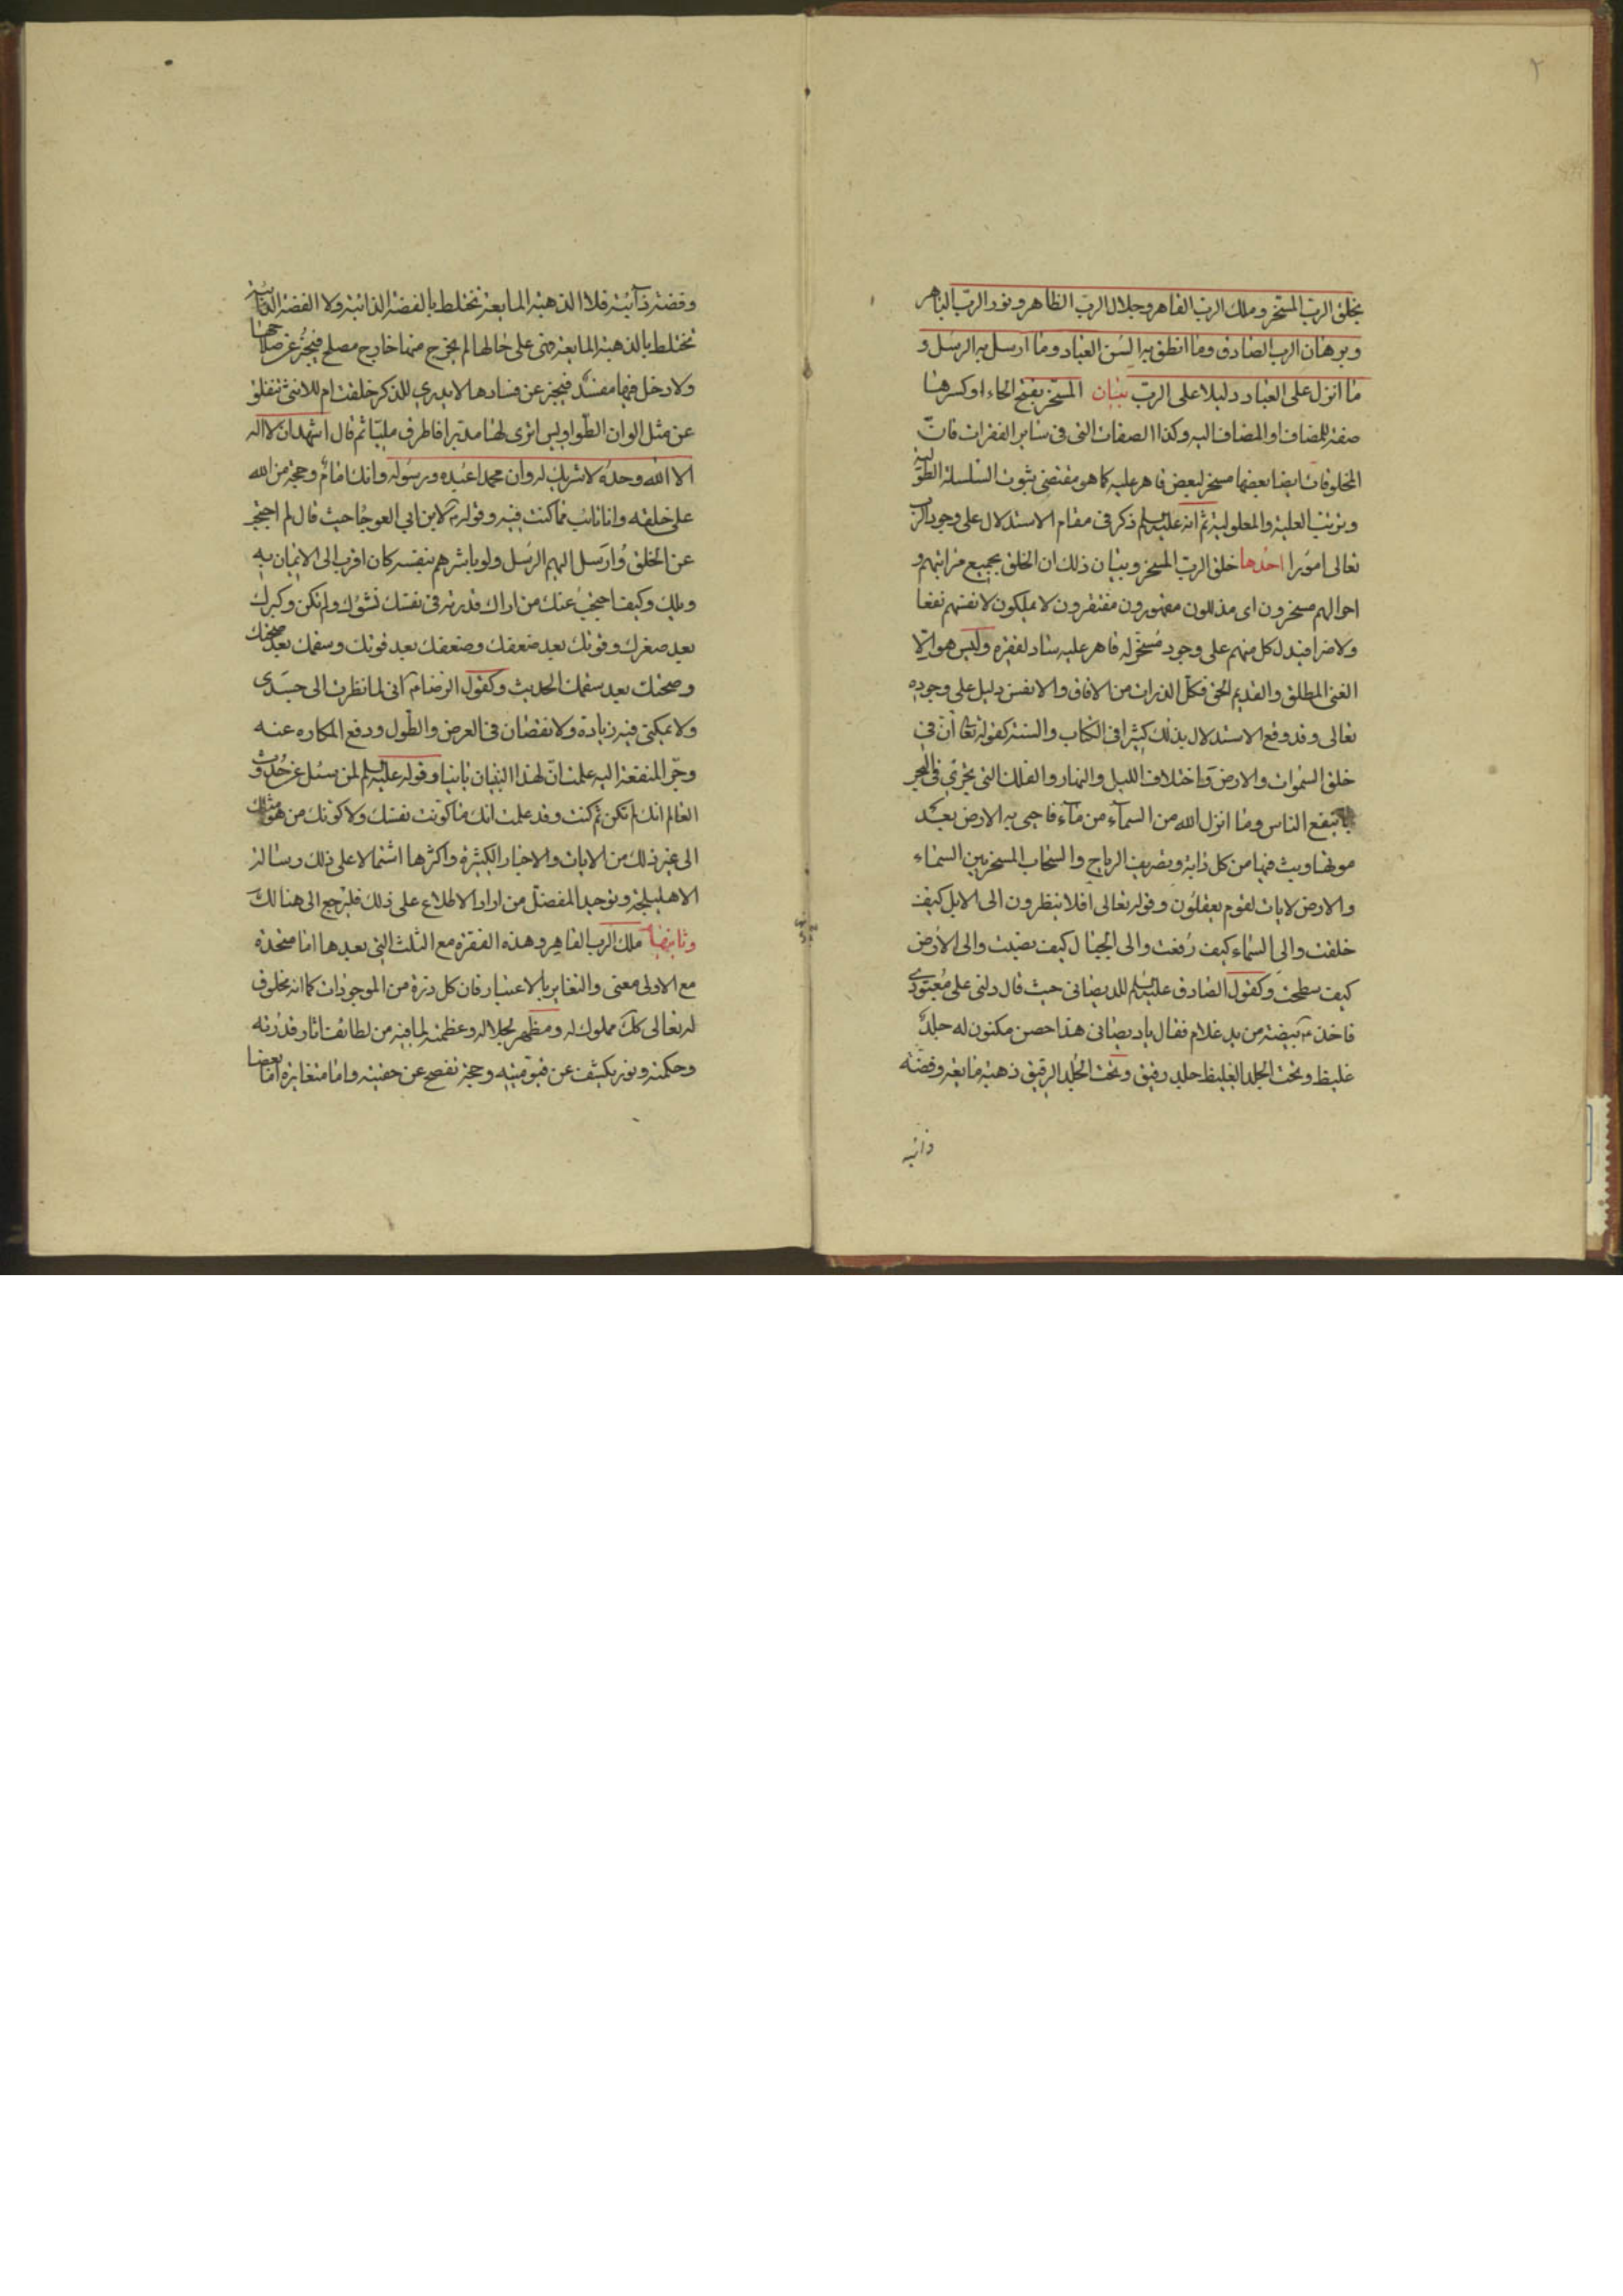 ٢
بخلق الرب المسخر وملك الرب القاهر وجلال الرب الظاهر ونور الرب الباهر
وبرهان الرب الصادق وما انطق به السن العباد وما ارسل به الرسل و
ما انزل على العباد دليلا على الرب بيان المسخر بفتح الخاء او كسرها
صفة للمضاف او المضاف اليه وكذا الصفات التى فى ساير الفقرات فان
المخلوقات ايضا بعضها مسخر لبعض قاهر عليه كما هو مقتضى ثبوت السلسلة الطولية
وترتيب العلية والمعلولية ثم انه عليه السلم ذكر فى مقام الاستدلال على وجود الرب
تعالى امورا احدها خلق الرب المسخر وبيان ذلك ان الخلق بجميع مراتبهم و
احوالهم مسخرون اى مذللون مقهورون مفتقرون لا يملكون لانفسهم نفعا
ولا ضرا فيدل كل منهم على وجود مسخر له قاهر عليه ساد لفقره وليس هو الا
الغنى المطلق والقديم الحق فكل الذرات من الافاق والانفس دليل على وجوده
تعالى وقد وقع الاستدلال بذلك كثيرا فى الكتاب والسنة كقوله تعا ان فى
خلق السموات والارض واختلاف الليل والنهار والفلك التى يجرى فى البحر
بما ينفع الناس وما انزل الله من السمآء من مآء فاحيى به الارض بعد
موتها وبث فيها من كل دابة وتصريف الرياح والسحاب المسخر بين السماء
والارض لايات لقوم يعقلون وقوله تعالى افلا ينظرون الى الابل كيف
خلقت والى السماء كيف رفعت والى الجبال كيف نصبت والى الارض
كيف سطحت وكقول الصادق عليه السلم للديصانى حيث قال دلنى على معبودى
فاخذ ع بيضة من يد غلام فقال يا ديصانى هذا حصن مكنون له جلد
غليظ وتحت الجلد الغليظ جلد رقيق وتحت الجلد الرقيق ذهبة مايعة وفضة
ذائبه
وفضة ذآئبة فلا الذهبة المايعة تختلط بالفضة الذائبة ولا الفضة الذائبة
تختلط بالذهبة المايعة هى على حالها لم يخرج منها خارج مصلح فيخبر عن صلاحها
ولا دخل فيها مفسد فيخبر عن فسادها لا يدرى للذكر خلقت ام للانثى تنفلق
عن مثل الوان الطواويس اترى لها مدبرا فاطرق مليا ثم قال اشهد ان لا اله
الا الله وحده لا شريك له وان محمدا عبده ورسوله وانك امام وحجة من الله
على خلقه وانا تائب مما كنت فيه وقوله ع لابن ابى العوجا حيث قال لم احتجب
عن الخلق وارسل اليهم الرسل ولو باشرهم بنفسه كان اقرب الى الايمان به
ويلك وكيف احتجب عنك من اراك قدرته فى نفسك نشوك ولم تكن وكبرك
بعد صغرك وقوتك بعد ضعفك وضعفك بعد قوتك وسقمك بعد صحتك
وصحتك بعد سقمك الحديث وكقول الرضا ع انى لما نظرت الى جسدى
ولا يمكنى فيه زيادة ولا نقصان فى العرض والطول ودفع المكاره عنه
وجر المنفعة اليه علمت ان لهذا البنيان بانيا وقوله عليه السلم لمن سئل عن حدوث
العالم انك لم تكن ثم كنت وقد علمت انك ما كونت نفسك ولا كونك من هو مثلك
الى غير ذلك من الايات والاخبار الكثيرة واكثرها اشتمالا على ذلك رسالة
الاهليلجة وتوحيد المفضل من اراد الاطلاع على ذلك فليرجع الى هنالك
وثانيها ملك الرب القاهر وهذه الفقرة مع الثلث التى بعدها اما متحدة
مع الاولى معنى والتغاير بالاعتبار فان كل ذرة من الموجودات كما انه مخلوق
له تعالى كك مملوك له ومظهر لجلاله وعظمته لما فيه من لطائف اثار قدرته
وحكمته ونور يكشف عن قيوميته وحجة تفصح عن حقيته واما متغايرة اما بعضا